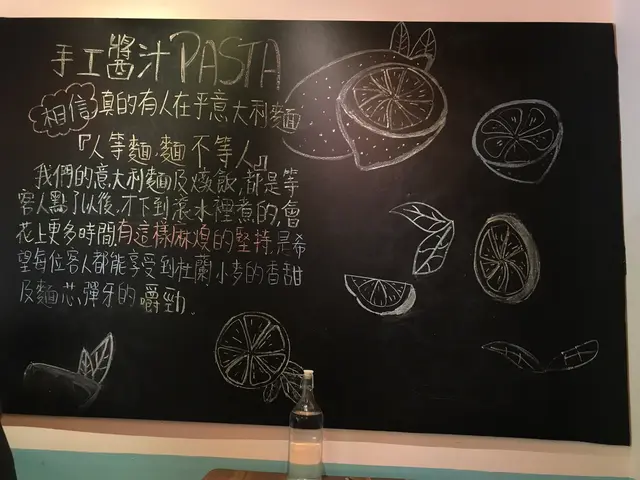 手工醬汁PASTA
相信真的有人在乎意大利麵
『人等麵,麵不等人』
我們的意大利麵及燉飯,都是等
客人點了以後,才下到滾水裡煮的,會
花上更多時間.有這樣麻煩的堅持.是希
望每位客人都能享受到杜蘭小麥的香甜
及麵芯彈牙的嚼勁.